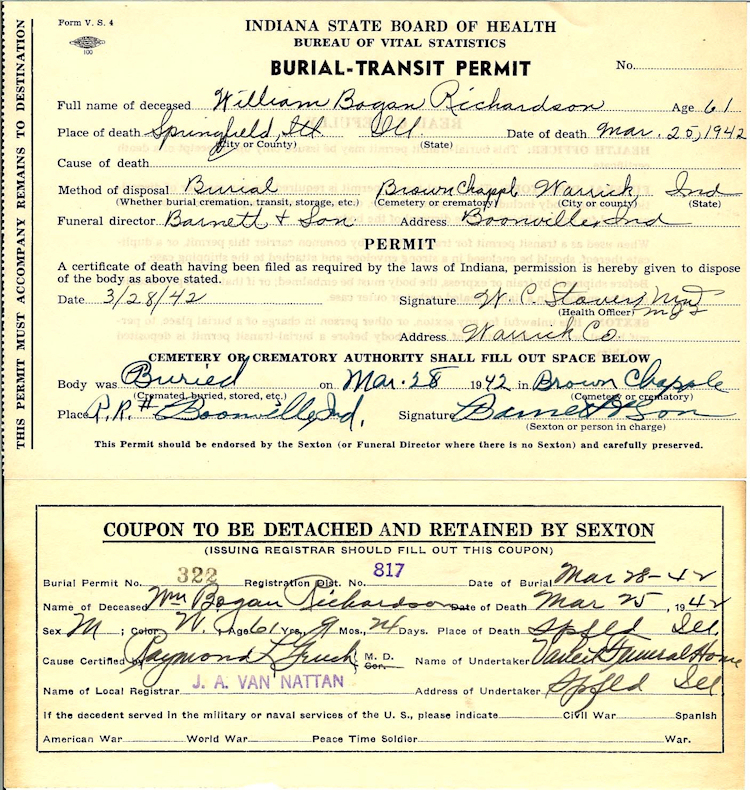 Form V. S. 4
100
INDIANA STATE BOARD OF HEALTH
BUREAU OF VITAL STATISTICS
BURIAL-TRANSIT PERMIT
No.
Full name of deceased William Bogan Richardson Age 61
Place of death Springfield, Ill Ill. Date of death Mar. 25, 1942
(City or County) (State)
Cause of death
Method of disposal Burial Brown Chappl Warrick Ind
(Whether burial cremation, transit, storage, etc.) (Cemetery or crematory) (City or county) (State)
Funeral director Barnett + Son Address Boonville, Ind
PERMIT
A certificate of death having been filed as required by the laws of Indiana, permission is hereby given to dispose
of the body as above stated.
Date 3/28/42 Signature W. C. Stover
(Health Officer)
Address Warrick Co.
CEMETERY OR CREMATORY AUTHORITY SHALL FILL OUT SPACE BELOW
Body was Buried on Mar. 28 1942 in Brown Chapple
(Cremated, buried, stored, etc.) (Cemetery or crematory)
Place R. R. # Boonville, Ind. Signature Barnett & Son
(Sexton or person in charge)
This Permit should be endorsed by the Sexton (or Funeral Director where there is no Sexton) and carefully preserved.
THIS PERMIT MUST ACCOMPANY REMAINS TO DESTINATION
COUPON TO BE DETACHED AND RETAINED BY SEXTON
(ISSUING REGISTRAR SHOULD FILL OUT THIS COUPON)
Burial Permit No. 322 Registration Dist. No. 817 Date of Burial Mar 28-42
Name of Deceased Wm Bogan Richardson Date of Death Mar 25, 1942
Sex M; Color W.; Age 61 Yrs. 9 Mos. 24 Days. Place of Death Spfld Ill.
Cause Certified by Raymond L. M. D. Cor. Name of Undertaker Funeral Home
Name of Local Registrar J. A. VAN NATTAN Address of Undertaker Spfld Ill
If the decedent served in the military or naval services of the U. S., please indicate Civil War Spanish
American War World War Peace Time Soldier War.